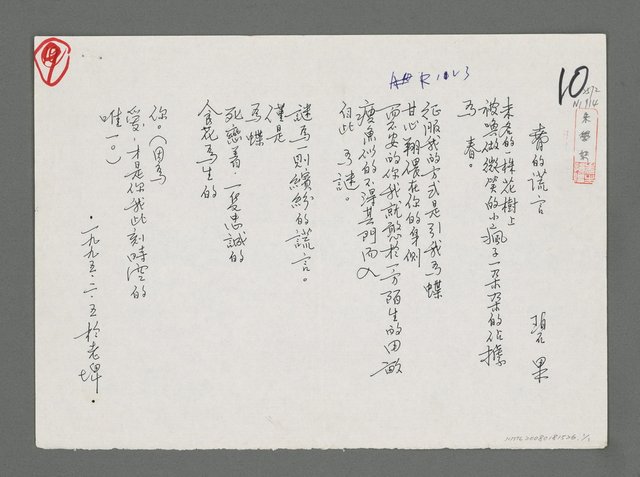 10
朱學恕
春的謊言 碧果
未老的株花樹上
被喚做微笑的小瘋子一朵朵的佔據
為 春。
征服我的方式是引我為蝶
甘心翔偎在你的身側
而不安的你我就憨於一方陌生的田畝
瘦魚似的不得其門而入
自此 為謎。
謎為一則繽紛的謊言。
僅是
為蝶
死戀著 一隻忠誠的
食花為生的
你。(因為
愛,才是你我此刻時空的
唯一。)
·一九九五·二·五於老埤·
NMTL20080181526 1/1